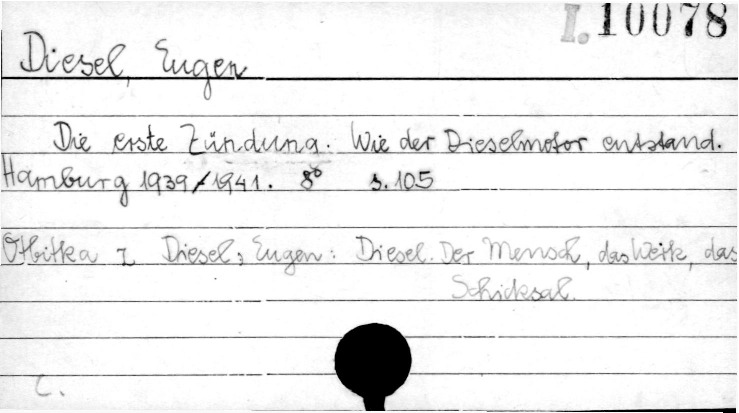 I. 10078
Diesel, Eugen
Die erste Zündung. Wie der Dieselmotor entstand.
Hamburg 1939/1941. 8° s. 105
Otbitka z Diesel, Eugen: Diesel. Der Mensch, das Werk, das
Schicksal.
C.